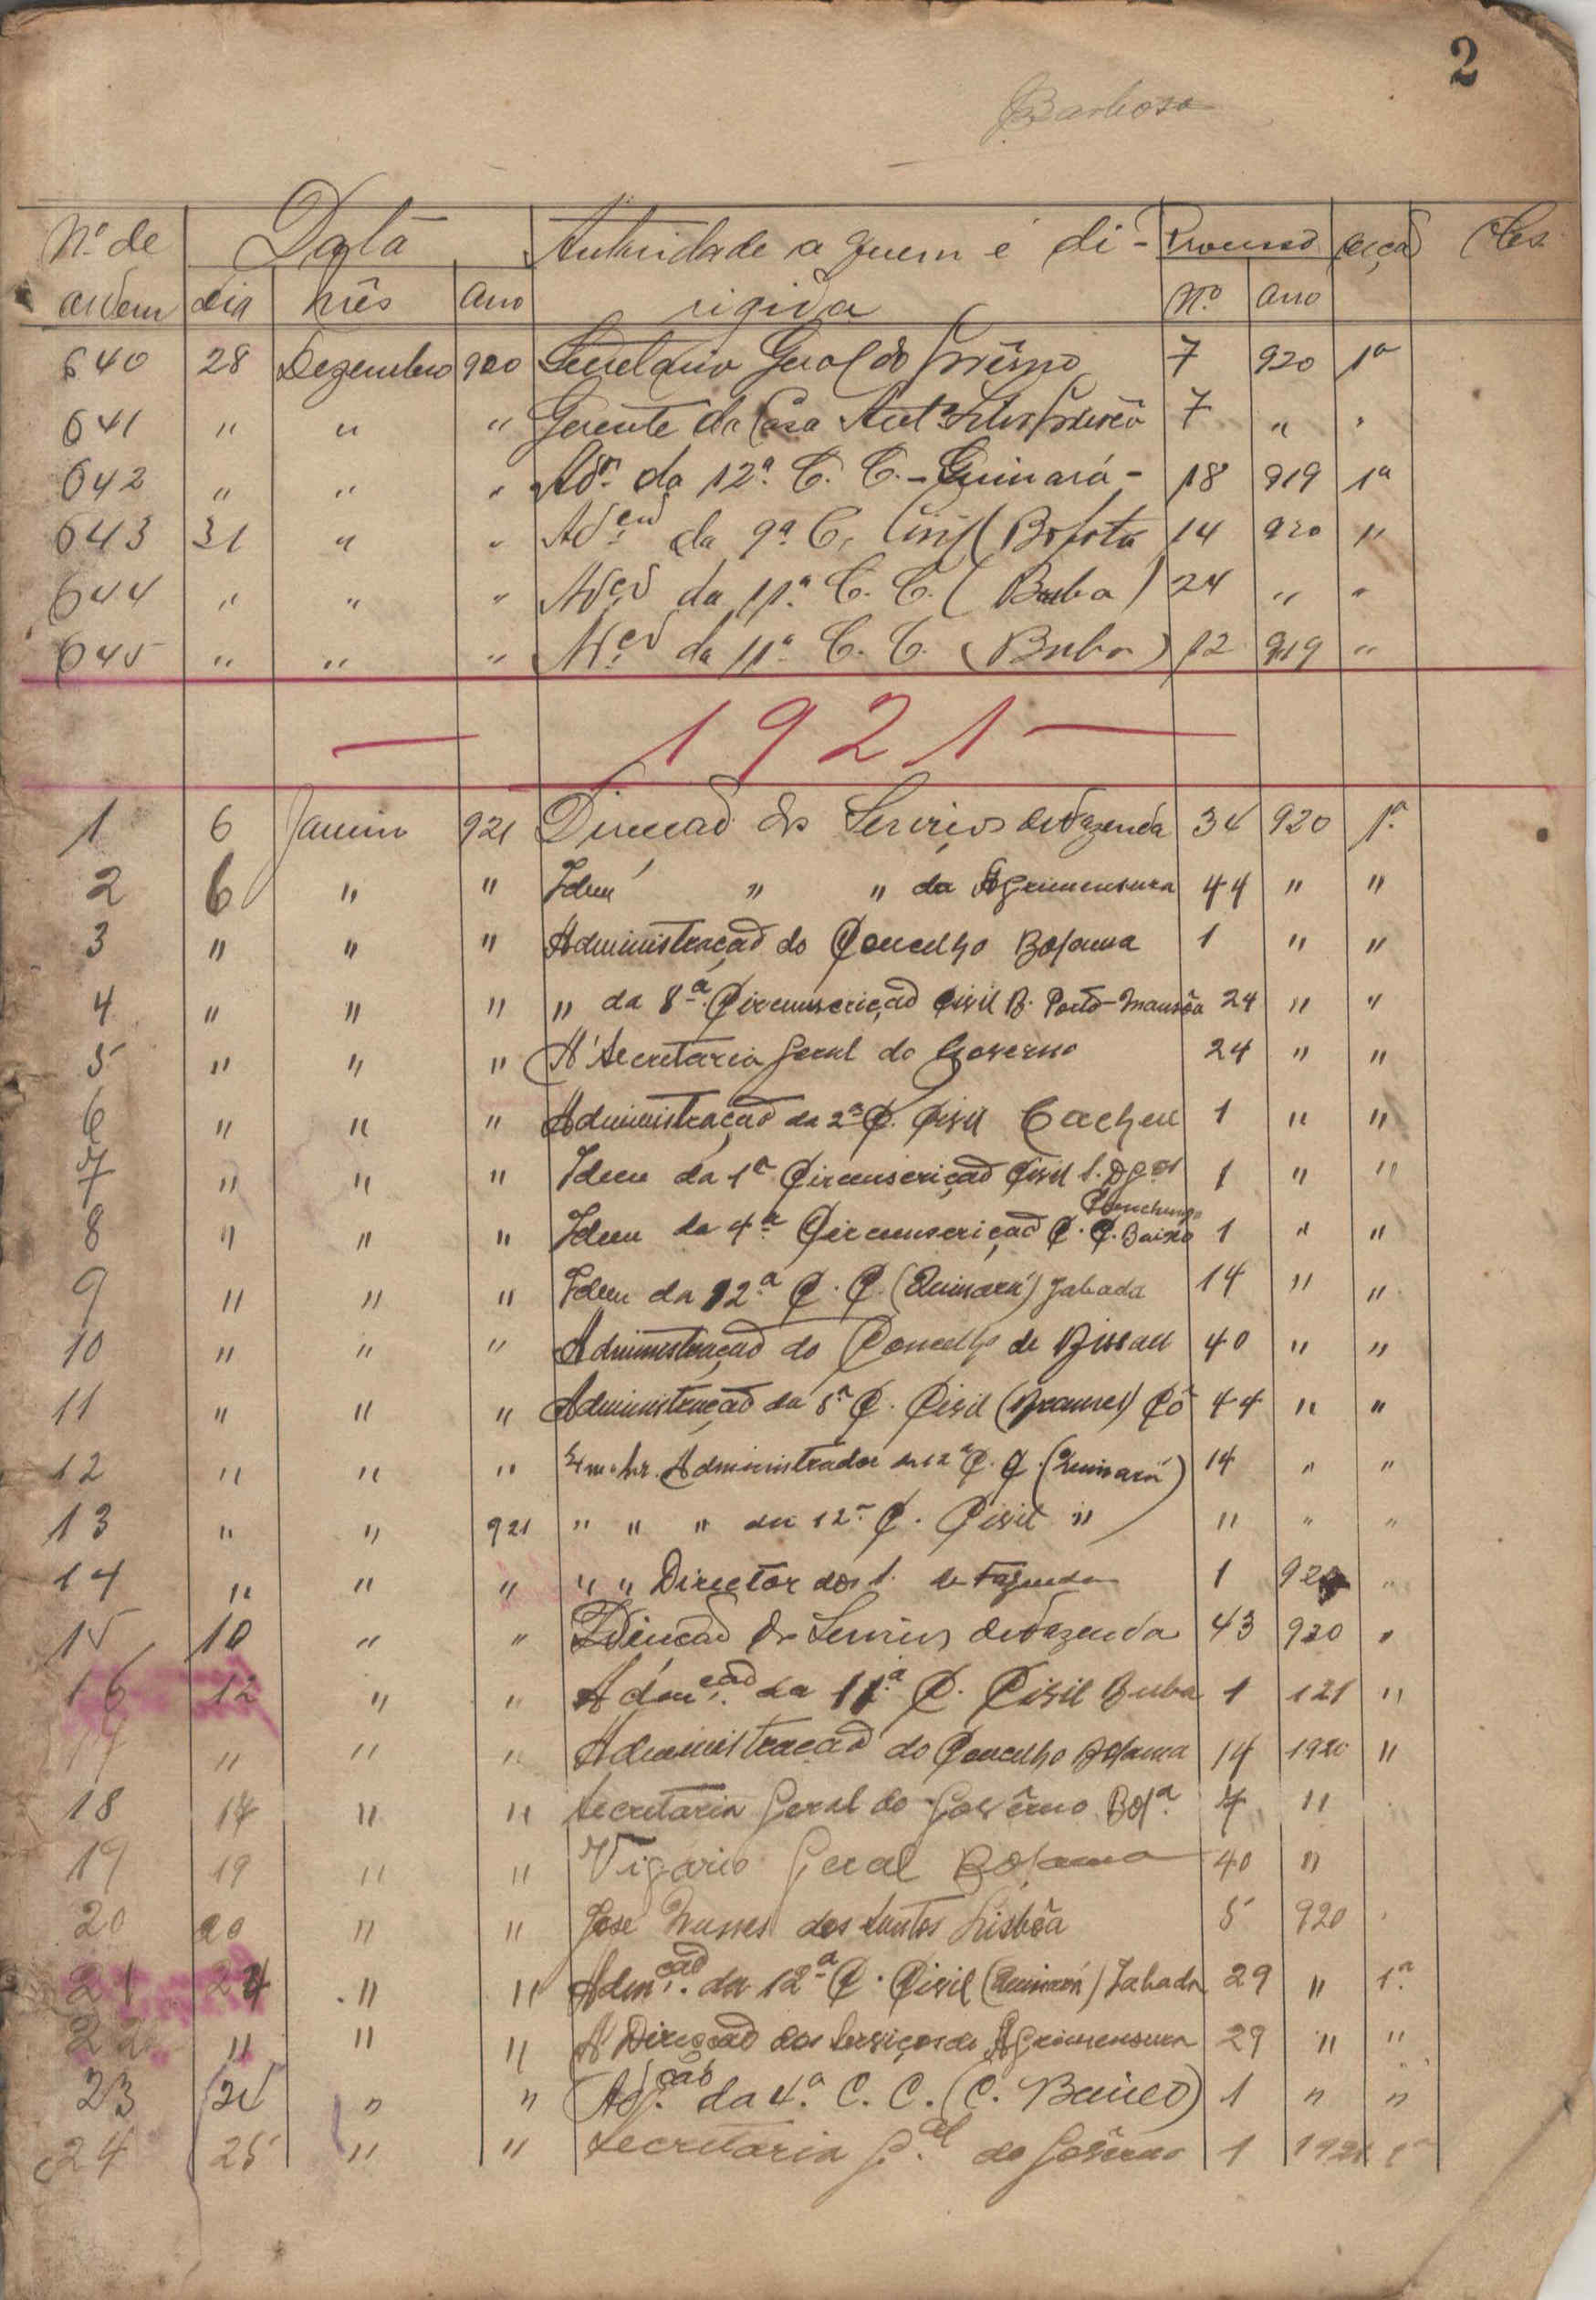 2
Barbosa
Nº de Data Autoridade a quem é di- Processo Secção Obs
ordem dia mês ano rigida Nº ano
640 28 Dezembro 920 Secretário Geral do Govêrno 7 920 1ª
641 " " " Gerente da Casa Antº Silva 7 " "
642 " " " Adm. da 12ª C. C. - Quinará - 18 919 1ª
643 31 " " Adm.ção da 9ª C. Civil (Bafatá 14 920 "
644 " " " Adm.ção da 11ª C. C. (Buba) 24 " "
645 " " " Adm.ção da 11ª C. C. (Buba) 12 919 "
— 1921 —
1 6 Janeiro 921 Direcção dos Serviços de Fazenda 34 920 1ª
2 6 " " Idem " " da Agrimensura 44 " "
3 " " " Administração do Concelho Bolama 1 " "
4 " " " " da 8ª Circunscrição Civil B. Porto-Mansôa 24 " "
5 " " " A' Secretaria Geral do Governo 24 " "
6 " " " Administração da 2ª C. Civil Cacheu 1 " "
7 " " " Idem da 1ª Circunscrição Civil S. Dgos 1 " "
8 " " " Idem da 4ª Circunscrição C. C. Baixo 1 " "
9 " " " Idem da 12ª C. C. (Quinará) Jabada 14 " "
10 " " " Administração do Concelho de Bissau 40 " "
11 " " " Administração da 5ª C. Civil (Brames) Có 44 " "
12 " " " Ilmo. Sr. Administrador da 12ª C. C. (Quinará) 14 " "
13 " " 921 " " " da 12ª C. Civil " " " "
14 " " " " " Director dos S. de Fazenda 1 920 "
15 10 " " Direcção dos Serviços de Fazenda 43 920 "
16 12 " " Adm.ção da 11ª C. Civil Buba 1 121 "
17 " " " Administração do Concelho Bolama 14 1920 "
18 14 " " Secretaria Geral do Govêrno Bolª 4 "
19 19 " " Vigario Geral Bolama 40 "
20 20 " " José Nunes dos Santos Lisbôa 5 920 "
21 24 " " Adm.ção da 12ª C. Civil (Quinará) Jabada 29 " 1ª
22 " " " A' Direcção dos Serviços da Agrimensura 29 " "
23 24 " " Adm.ção da 4ª C. C. (C. Baixo) 1 " "
24 25 " " Secretaria G.al do Govêrno 1 1921 1ª